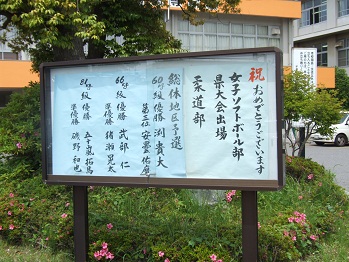 祝
おめでとうございます
女子ソフトボール部
県大会出場
柔道部
総体地区予選
60kg級 優勝 渕 貴大
第三位 安重 佑磨
66kg級 優勝 武部 仁
準優勝 猪瀬 晃太
81kg級 優勝 五十嵐 拓馬
準優勝 磯野 和也